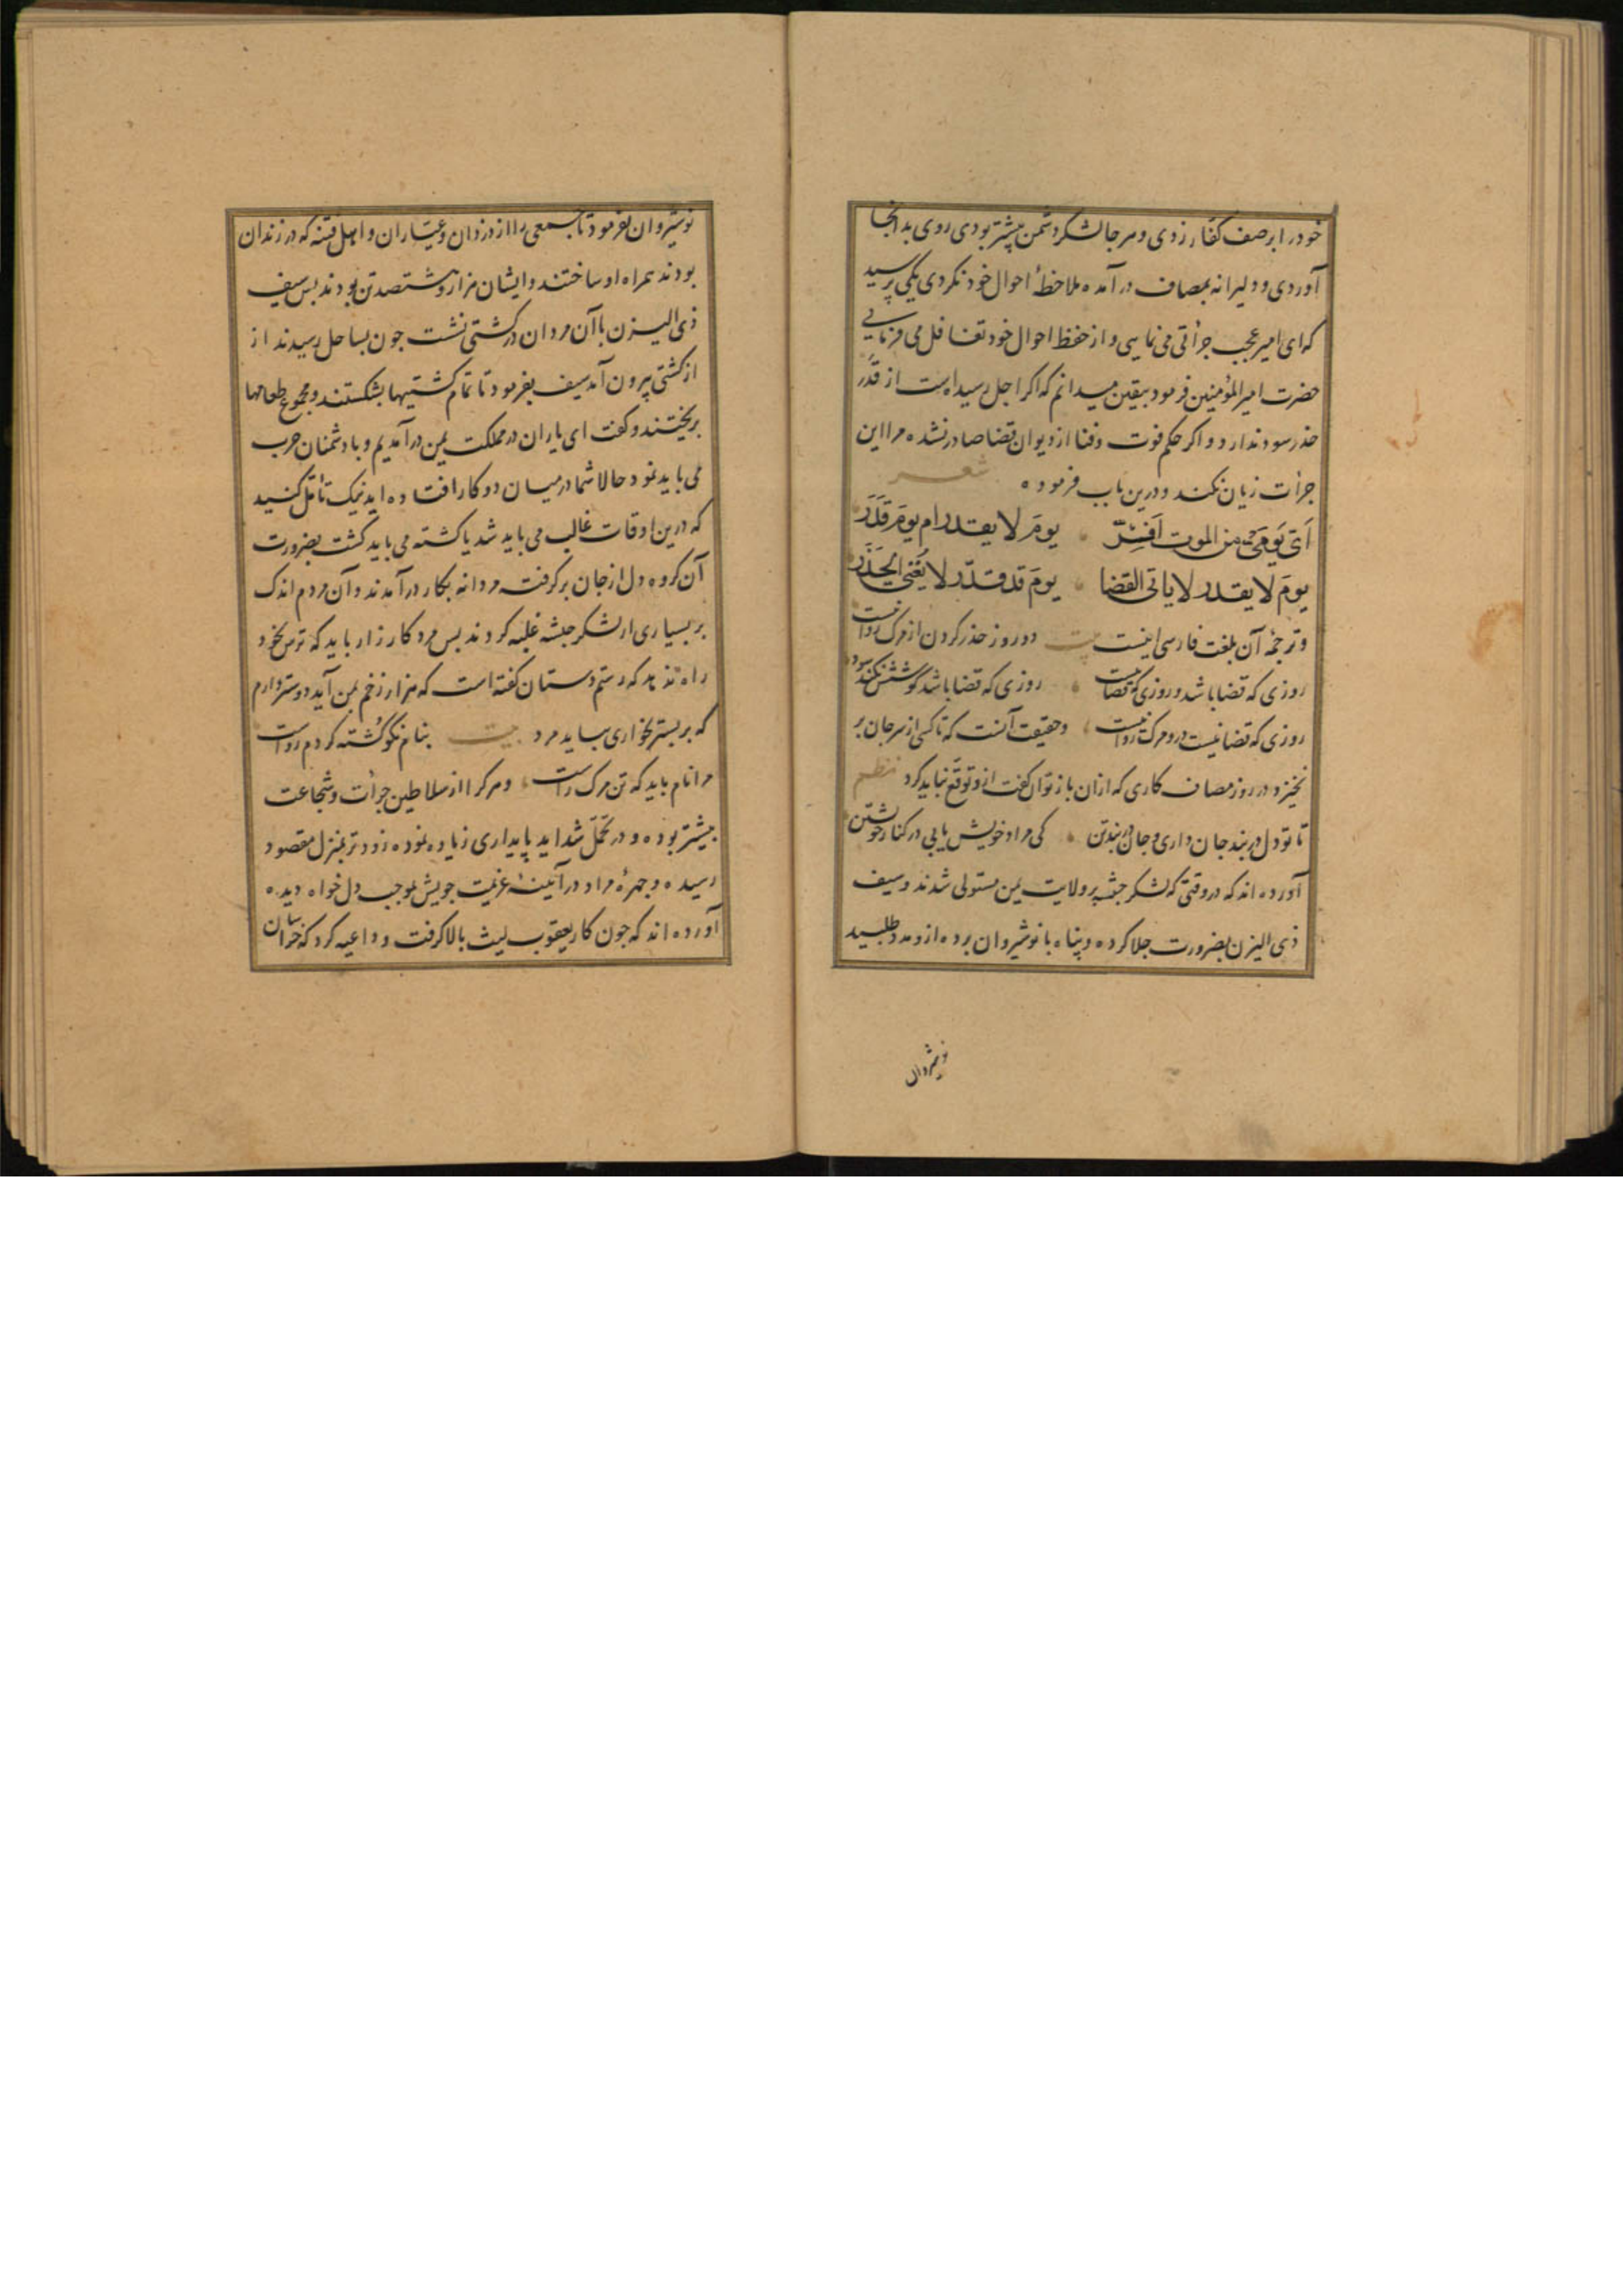 خود را بر صف کفار زدی و هر جا لشکر دشمن بیشتر بودی روی بدانجا
آوردی و دلیرانه بمصاف در آمده ملاحظهٔ احوال خود نکردی یکی پرسید
که ای امیر عجب جرأتی می نمایی و از حفظ احوال خود تغافل می فرمایی
حضرت امیر المؤمنین فرمود بیقین میدانم که اگر اجل رسیده است از قدر
حذر سود ندارد و اگر حکم فوت و فنا از دیوان قضا صادر نشده مرا این
جرأت زیان نکند و درین باب فرموده شعر
اَیَّ یَومَیَّ من الموت اَفِرّ یومَ لا یقدر ام یومَ قُدِرَ
یومَ لا یقدر لا یاتی القضا یومَ قد قدّر لا یُغنی الحَذَر
و ترجمهٔ آن بلغت فارسی اینست بیت دو روز حذر کردن از مرگ روا نیست
روزی که قضا باشد و روزی که قضا نیست روزی که قضا باشد کوشش نکند سود
روزی که قضا نیست درو مرگ روا نیست و حقیقت آنست که تا کسی از سر جان بر
نخیزد در روز مصاف کاری که ازان باز توان گفت ازو توقّع نباید کرد نظم
تا تو دل در بند جان داری و جان در بند تن کی مراد خویش یابی در کنار خویشتن
آورده اند که در وقتی که لشکر حبشه بر ولایت یمن مستولی شدند و سیف
ذی الیزن بضرورت جلا کرده و پناه با نوشیروان برده ازو مدد طلبید
نوشیروان
نوشیروان بفرمود تا جمعی را از دزدان و عیّاران و اهل فتنه که در زندان
بودند همراه او ساختند و ایشان هزار و هشتصد تن بودند بس سیف
ذی الیزن با آن مردان در کشتی نشست جون بساحل رسیدند از
از کشتی بیرون آمد سیف بفرمود تا تمام کشتیها بشکستند و مجموع طعامها
بریختند و گفت ای یاران در مملکت یمن در آمدیم و با دشمنان حرب
می باید نمود حالا شما در میان دو کار افتاده اید نیک تأمّل کنید
که درین اوقات غالب می باید شد یا کشته می باید گشت بضرورت
آن گروه دل از جان برگرفته مردانه بکار در آمدند و آن مردم اندک
بر بسیاری از لشکر حبشه غلبه کردند بس مرد کارزار باید که ترس بخود
راه ندهد که رستم دستان گفته است که هزار زخم بمن آید دوستر دارم
که بر بستر بخواری بباید مرد بیت بنام نکو کشته گردم رواست
مرا نام باید که تن مرگ راست و هر کرا از سلاطین جرأت و شجاعت
بیشتر بوده و در تحمّل شداید پایداری زیاده نموده زودتر بمنزل مقصود
رسیده و چهرهٔ مراد در آیینهٔ عزیمت خویش بموجب دل خواه دیده
آورده اند که جون کار یعقوب لیث بالا گرفت و داعیه کرد که خراسان